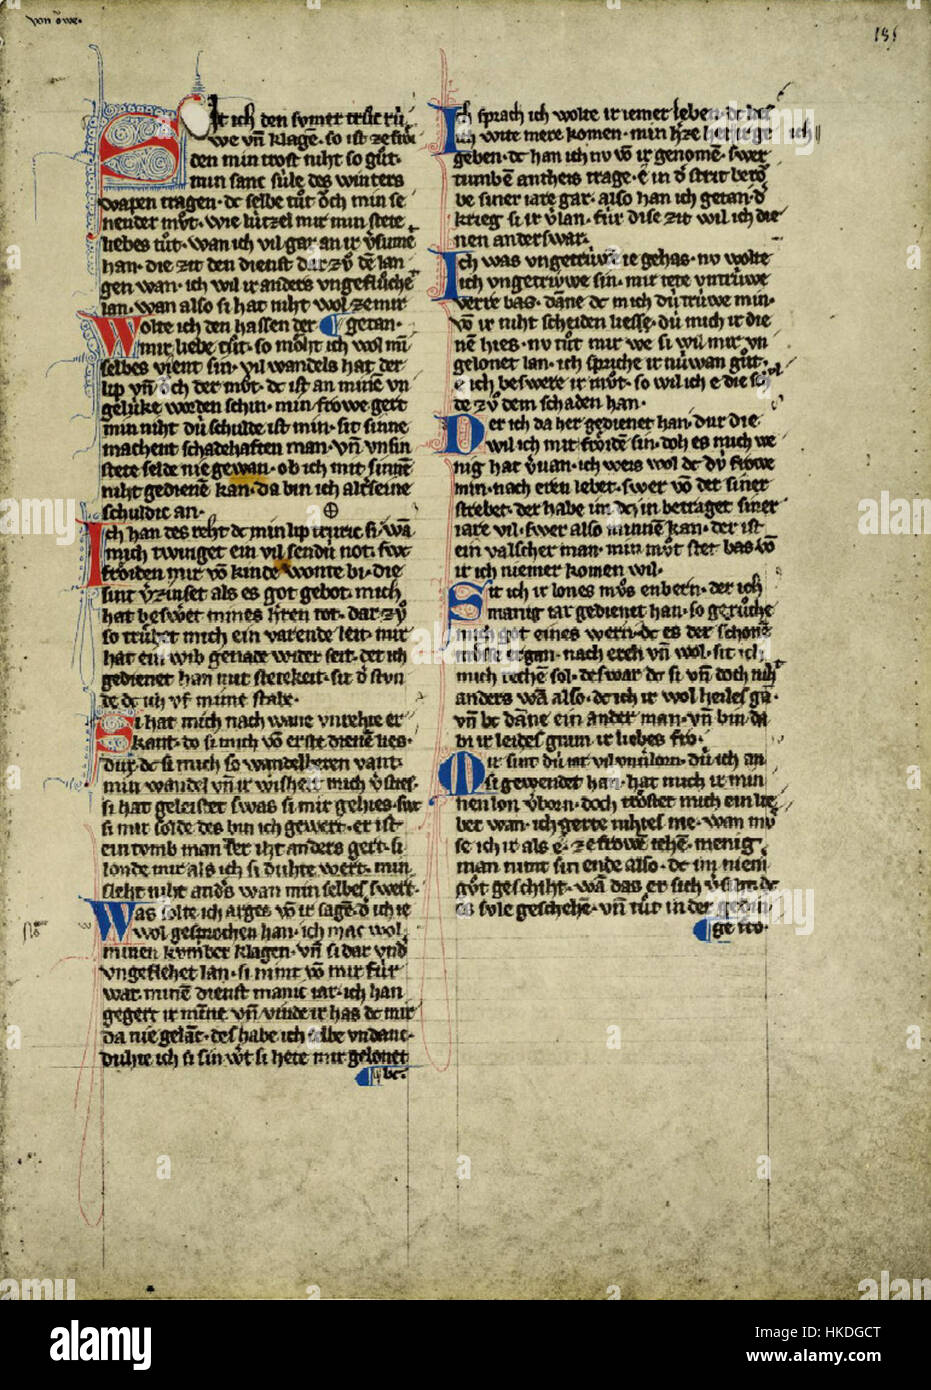 von Owe.
Sit ich den svmer trůc rů
we vn̄ klage· so ist ze frŏi
den min trost niht so gůt·
min sanc süle des winters
wapen tragen· dc selbe tůt ŏch min se
nender můt· wie lützel mir min stete
liebes tůt· wan ich vil gar an ir v̓sume
han· die zit den dienst dar zů dē lan
gen wan· ich wil ir anders vngeflůchet
lan· wan also si hat niht wol ze mir
getan·
Wolte ich den hassen der
mir leide tůt· so möht ich wol mī
selbes vient sin· vil wandels hat der
lip vn̄ ŏch der můt· dc ist an mime vn
gelüke worden schin· min frowe gert
min niht dú schulde ist min· sit sinne
machent seldehaften man· vn̄ vnsin
stete selde nie gewan· ob ich mit sinnē
niht gedienē kan· da bin ich alterseine
schuldic an·
Ich han des reht dc min lip truric si· wā
mich twinget ein vil sendú not· swc
frŏiden mir vō kinde wonte bi· die
sint v̓zinset als es got gebot· mich
hat beswert mines h̓ren tot· dar zů
so trůbet mich ein varende leit· mir
hat ein wib genade wider seit· der ich
gedienet han mit stetekeit· sit d̓ stvn
de dc ich vf mime stabe·
Si hat mich nach wane vnrehte er
kant· do si mich vō erste dienen lies·
dur dc si mich so wandelberen vant·
min wandel vn̄ ir wisheit mich v̓sties·
si hat geleistet swas si mir gehies· swc
si mir solde des bin ich gewert· er ist
ein tomb man der iht anders gert· si
londe mir als ich si duhte wert· min
sleht niht and̓s wan min selbes swert·
Was solte ich arges vō ir sagē· d̓ ich ie
wol gesprochen han· ich mac wol
minen kvmber klagen· vn̄ si dar vnd̓
vngeflehet lan· si nimt vō mir für
war minē dienst manic iar· ich han
gegert ir mīne vn̄ vinde ir has dc mir
da nie gelāc· des habe ich selbe vndanc·
duhte ich si sin w̓t si hete mir gelonet
bc·
Ich sprach ich wolte ir iemer leben· dc lies
ich wite mere komen· min h̓ze het ir ge ich
geben· dc han ich nv vō ir genomē· swer
tumbē antheis trage· ē in d̓ strit berŏ
be siner iare gar· also han ich getan· d̓
krieg si ir v̓lan· für dise zit wil ich die
nen anderswar·
Ich was vngetrüwē ie gehas· nv wolte
ich vngetrüwe sin· mir tete vntrüwe
verre bas· dāne dc mich dú trüwe min·
vō ir niht scheiden liesse· dú mich ir die
nē hies· nv tůt mir we si wil mir vn
gelonet lan· ich spriche ir nüwan gůt·
e ich beswere ir můt· so wil ich e die schvl
de zů dem schaden han·
Der ich da her gedienet han· dur die
wil ich mit frŏidē sin· doh es mich we
nig hat v̓van· ich weis wol dc dú frowe
min· nach eren lebet· swer vō der siner
strebet· der habe im dc· in betraget siner
iare vil· swer also minnē kan· der ist
ein valscher man· min můt stet bas vō
ir ich niemer komen wil·
Sit ich ir lones můs enbern· der ich
manig iar gedienet han· so gerůche
mich got eines wern· dc es der schonē
můsse ergan· nach eren vn̄ wol· sit ich
mich rechē sol· deswar dc si· vn̄ doch niht
anders wā also· dc ich ir wol heiles gā·
vn̄ bc dāne ein ander man· vn̄ bin da
bi ir leides gram ir liebes fro·
Mir sint dú iar vil vnv̓lorn· dú ich an
si gewendet han· hat mich ir min
nen lon v̓born· doch tröstet mich ein lie
ber wan· ich gerte nihtes me· wan mů
se ich ir als e· ze frowē iehē· menig
man nimt sin ende also· dc im niem̄
gůt geschiht· wā das er sich v̓siht· dc
es süle geschehē· vn̄ tůt in der gedin
ge fro·
alamy
Image ID: HKDGCT
www.alamy.com